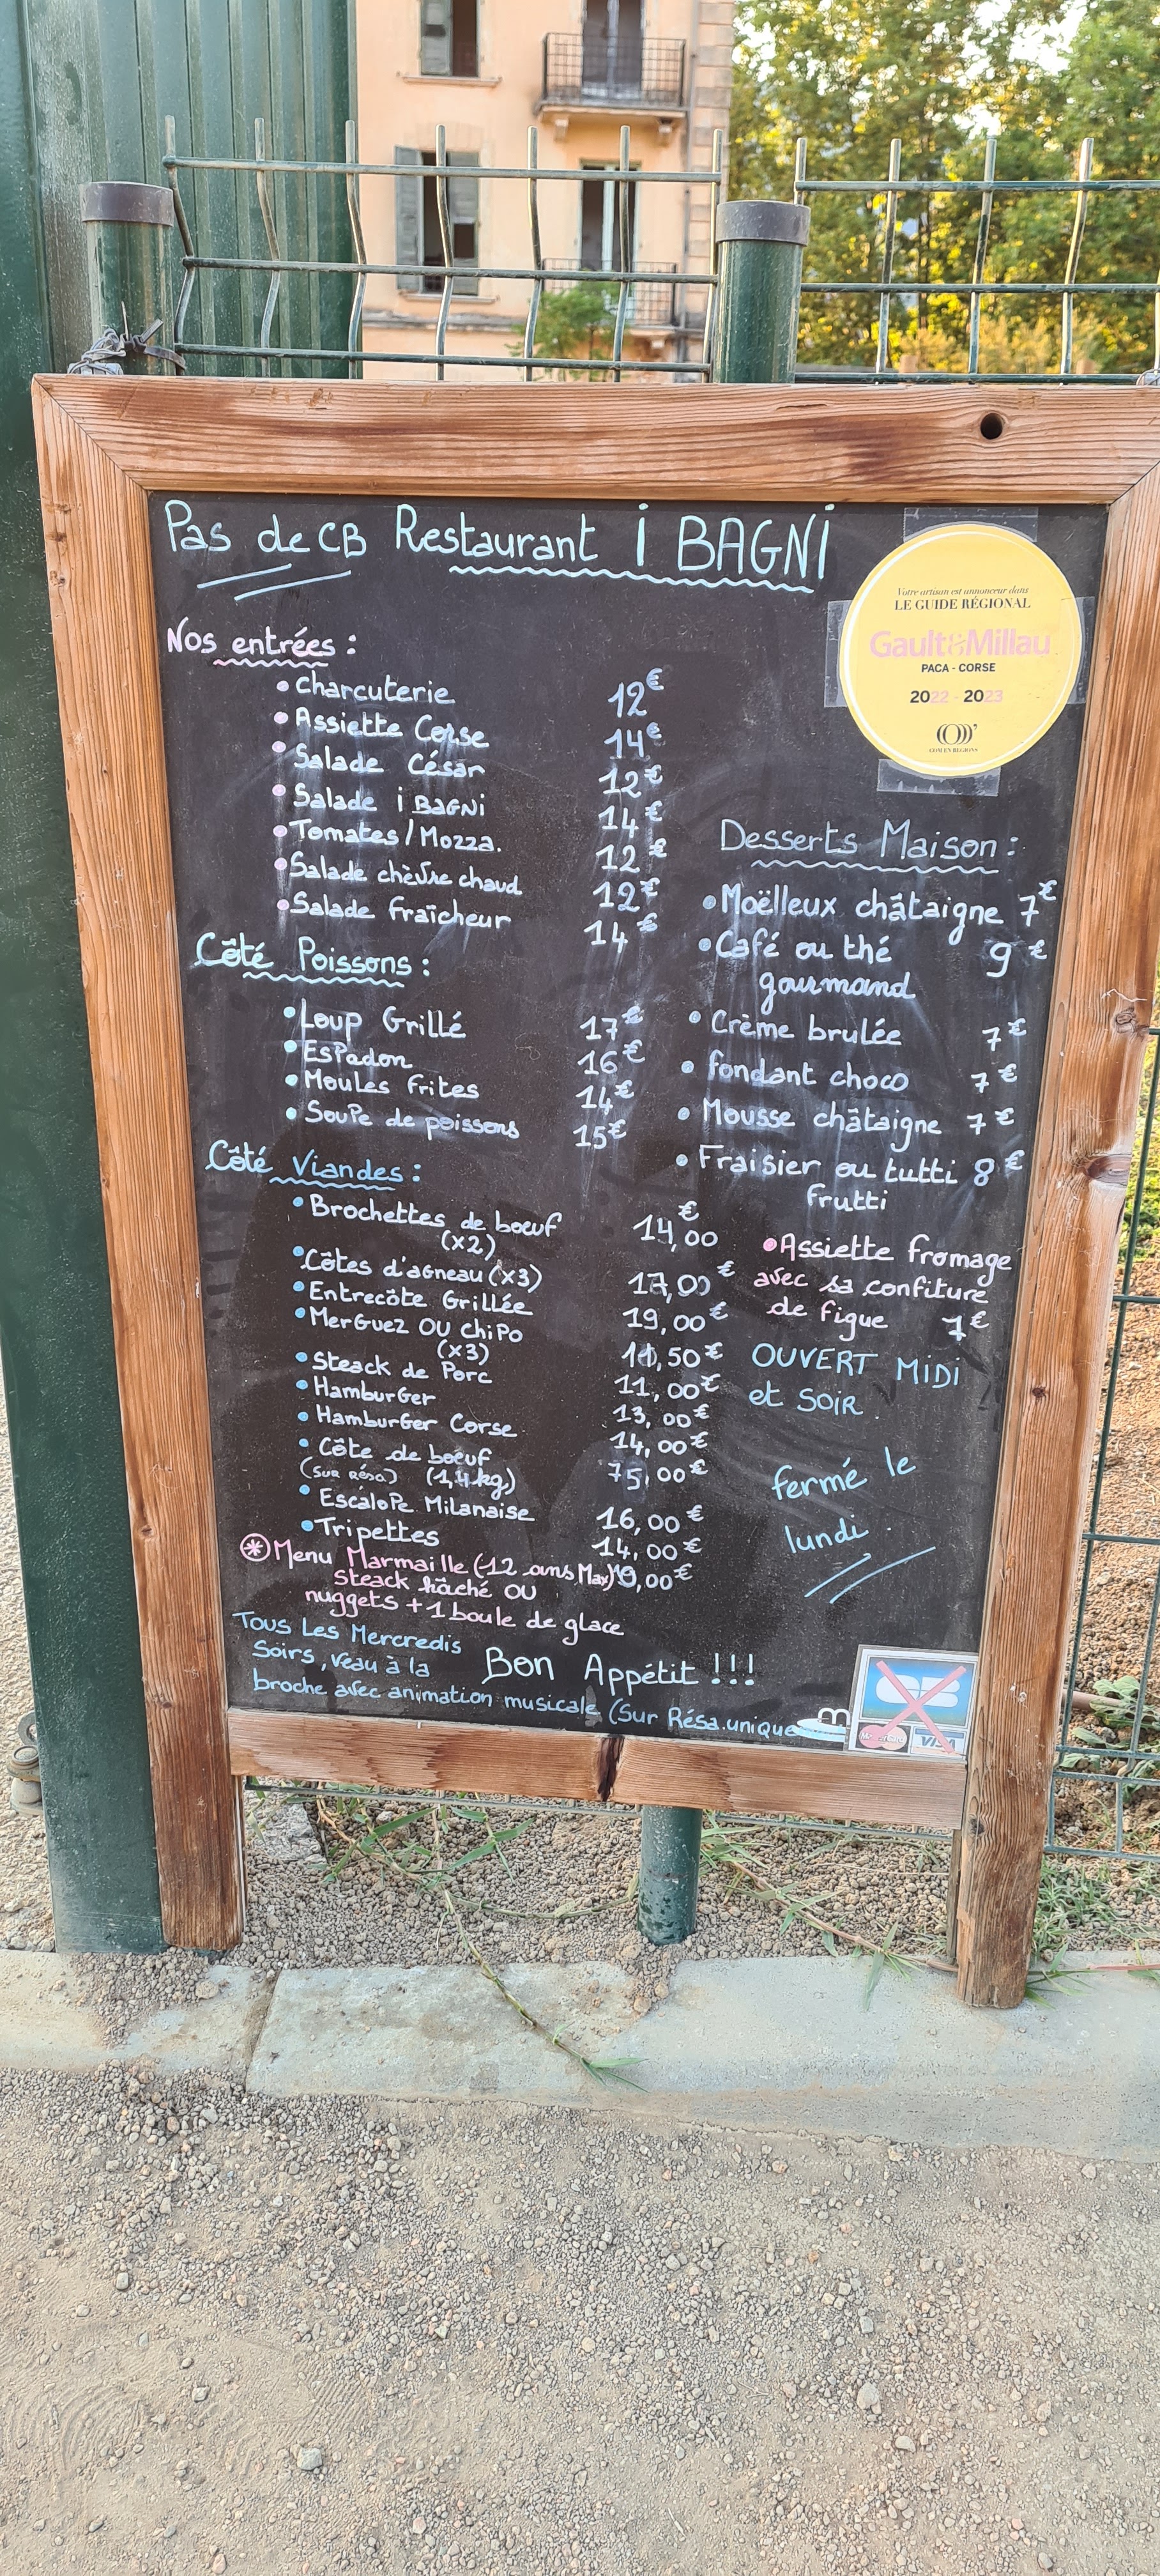 Pas de CB Restaurant i BAGNi
Votre artisan est annonceur dans
LE GUIDE RÉGIONAL
Gault&Millau
PACA - CORSE
2022 - 2023
COM EN RÉGIONS
Nos entrées :
• Charcuterie 12€
• Assiette Corse 14€
• Salade César 12€
• Salade i BAGNi 14€
• Tomates/Mozza. 12€
• Salade chèvre chaud 12€
• Salade fraîcheur 14€
Côté Poissons :
• Loup Grillé 17€
• EsPadon 16€
• Moules frites 14€
• SouPe de poissons 15€
Côté Viandes :
• Brochettes de boeuf 14,00€
(x2)
• Côtes d'agneau (x3) 17,00€
• Entrecôte Grillée 19,00€
• MerGuez OU ChiPo ,50€
(x3)
• Steack de Porc 11,00€
• HamburGer 13,00€
• HamburGer Corse 14,00€
• Côte de boeuf 75,00€
(sur Résa) (1,4kg)
• EscaloPe Milanaise 16,00€
• Tripettes 14,00€
* Menu Marmaille (-12 ans Max) ,00€
steack hâché OU
nuggets + 1 boule de glace
Tous Les Mercredis
Soirs, veau à la
broche avec animation musicale (Sur Résa.unique
Bon Appétit !!!
Desserts Maison :
• Moëlleux châtaigne 7€
• Café ou thé 9€
gourmand
• Crème brulée 7€
• fondant choco 7€
• Mousse châtaigne 7€
• Fraisier ou tutti 8€
frutti
• Assiette fromage
avec sa confiture
de figue 7€
OUVERT MIDI
et SOIR
fermé le
lundi
CB
MasterCard VISA